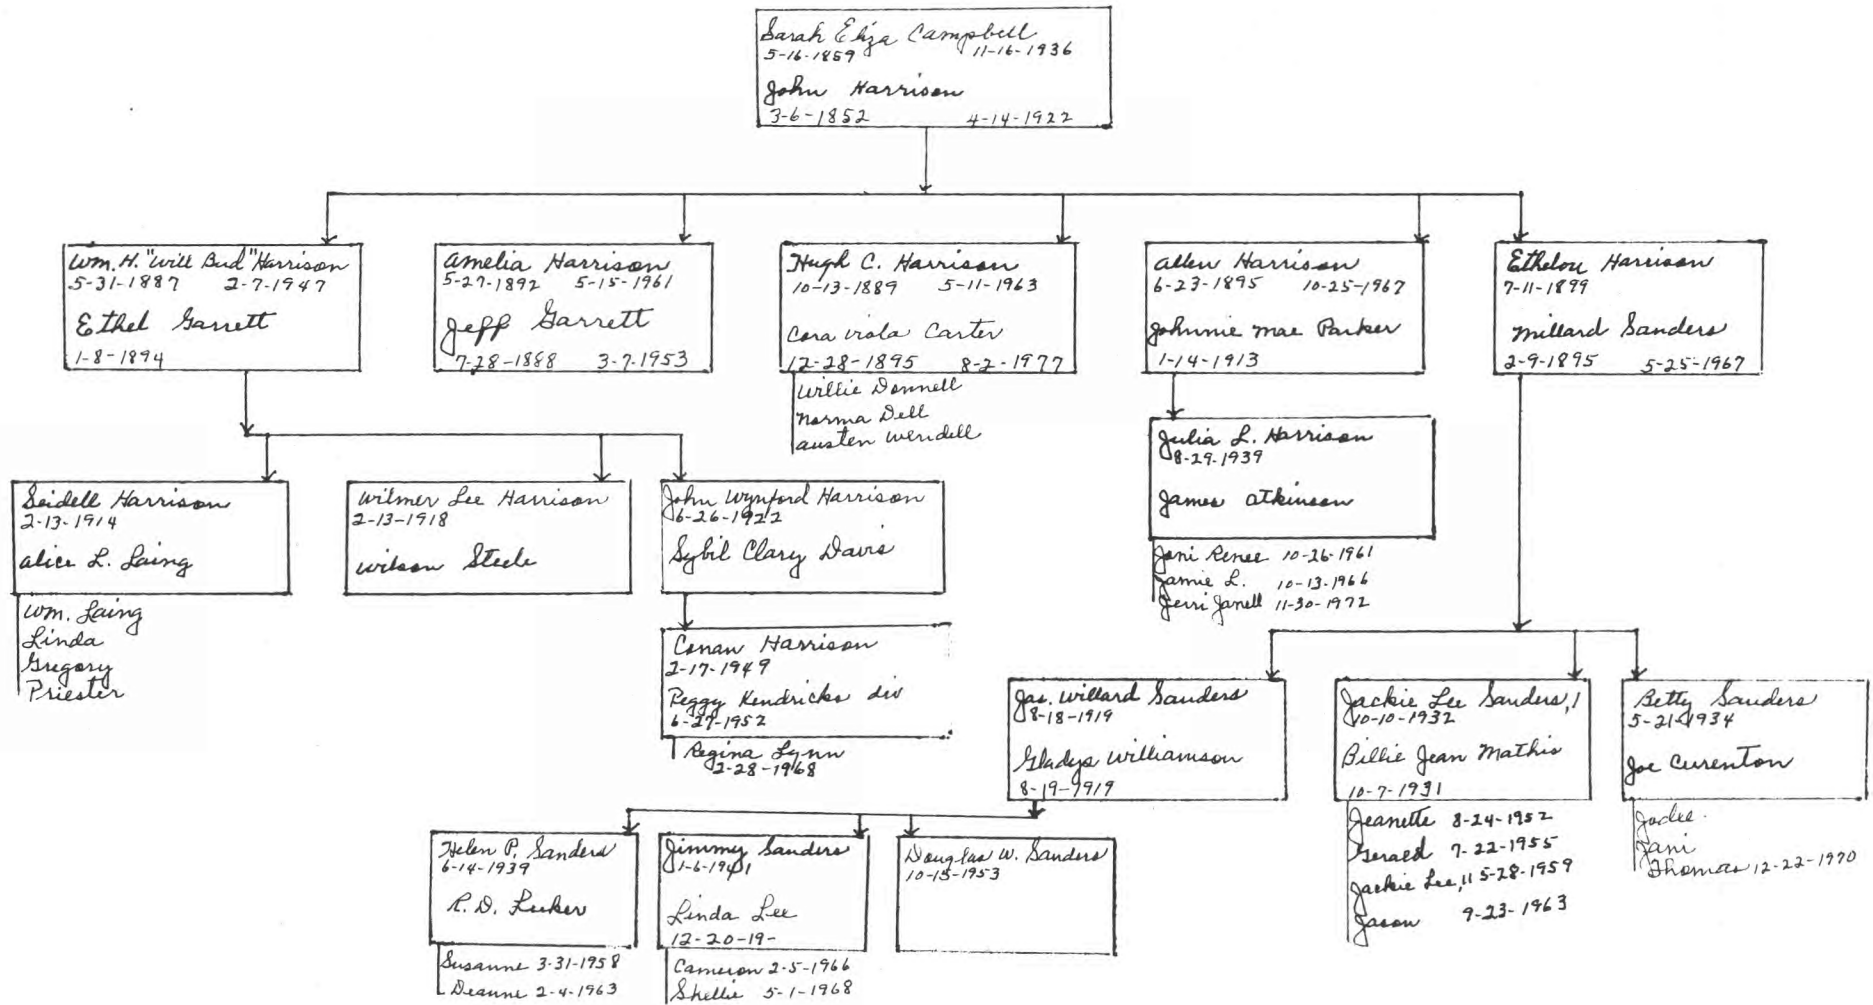 Sarah Eliza Campbell
5-16-1859 11-16-1936
John Harrison
3-6-1852 4-14-1922
Wm. H. "Will Bud" Harrison
5-31-1887 2-7-1947
Ethel Garrett
1-8-1894
Amelia Harrison
5-27-1892 5-15-1961
Jeff Garrett
7-28-1888 3-7-1953
Hugh C. Harrison
10-13-1889 5-11-1963
Cora Viola Carter
12-28-1895 8-2-1977
Willie Donnell
Norma Dell
Austen Wendell
Allen Harrison
6-23-1895 10-25-1967
Johnnie Mae Parker
1-14-1913
Ethelou Harrison
7-11-1899
Millard Sanders
2-9-1895 5-25-1967
Seidell Harrison
2-13-1914
Alice L. Laing
Wm. Laing
Linda
Gregory
Priester
Wilmer Lee Harrison
2-13-1918
Wilson Steele
John Wynford Harrison
6-26-1922
Sybil Clary Davis
Conan Harrison
2-17-1949
Peggy Kendricks div
6-27-1952
Regina Lynn
2-28-1968
Julia L. Harrison
8-29-1939
James Atkinson
Joni Renee 10-26-1961
Jamie L. 10-13-1966
Jerri Janell 11-30-1972
Jas. Willard Sanders
8-18-1919
Gladys Williamson
8-19-1919
Jackie Lee Sanders, I
10-10-1932
Billie Jean Mathis
10-7-1931
Jeanette 8-24-1952
Gerald 7-22-1955
Jackie Lee, II 5-28-1959
Jason 9-23-1963
Betty Sanders
5-21-1934
Joe Curenton
Jodee
Jani
Thomas 12-22-1970
Helen P. Sanders
6-14-1939
R. D. Luker
Susanne 3-31-1958
Deanne 2-4-1963
Jimmy Sanders
1-6-1941
Linda Lee
12-20-19-
Cameron 2-5-1966
Shellie 5-1-1968
Douglas W. Sanders
10-15-1953